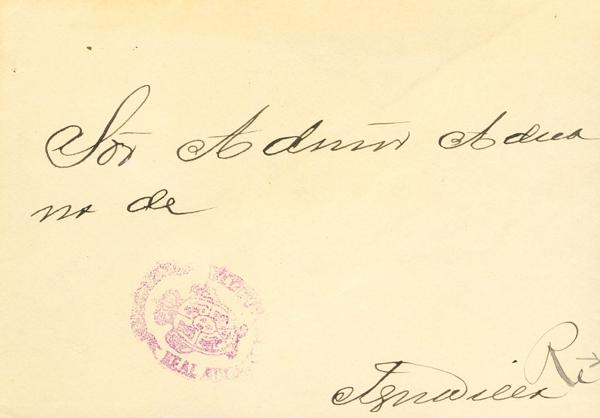 Sõr Admõr Adua
na de
REAL
Aguadilla